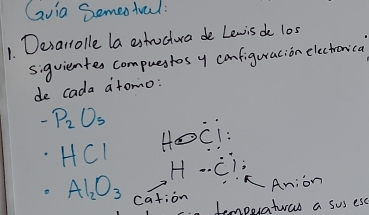 Guía Semestral:
1. Desarrolle la estructura de Lewis de los
siguientes compuestos y configuración electronica
de cada átomo:
- P₂O₅
· HCl
· Al₂O₃
H Cl:
H Cl:
catión
Anión
temperaturas a sus